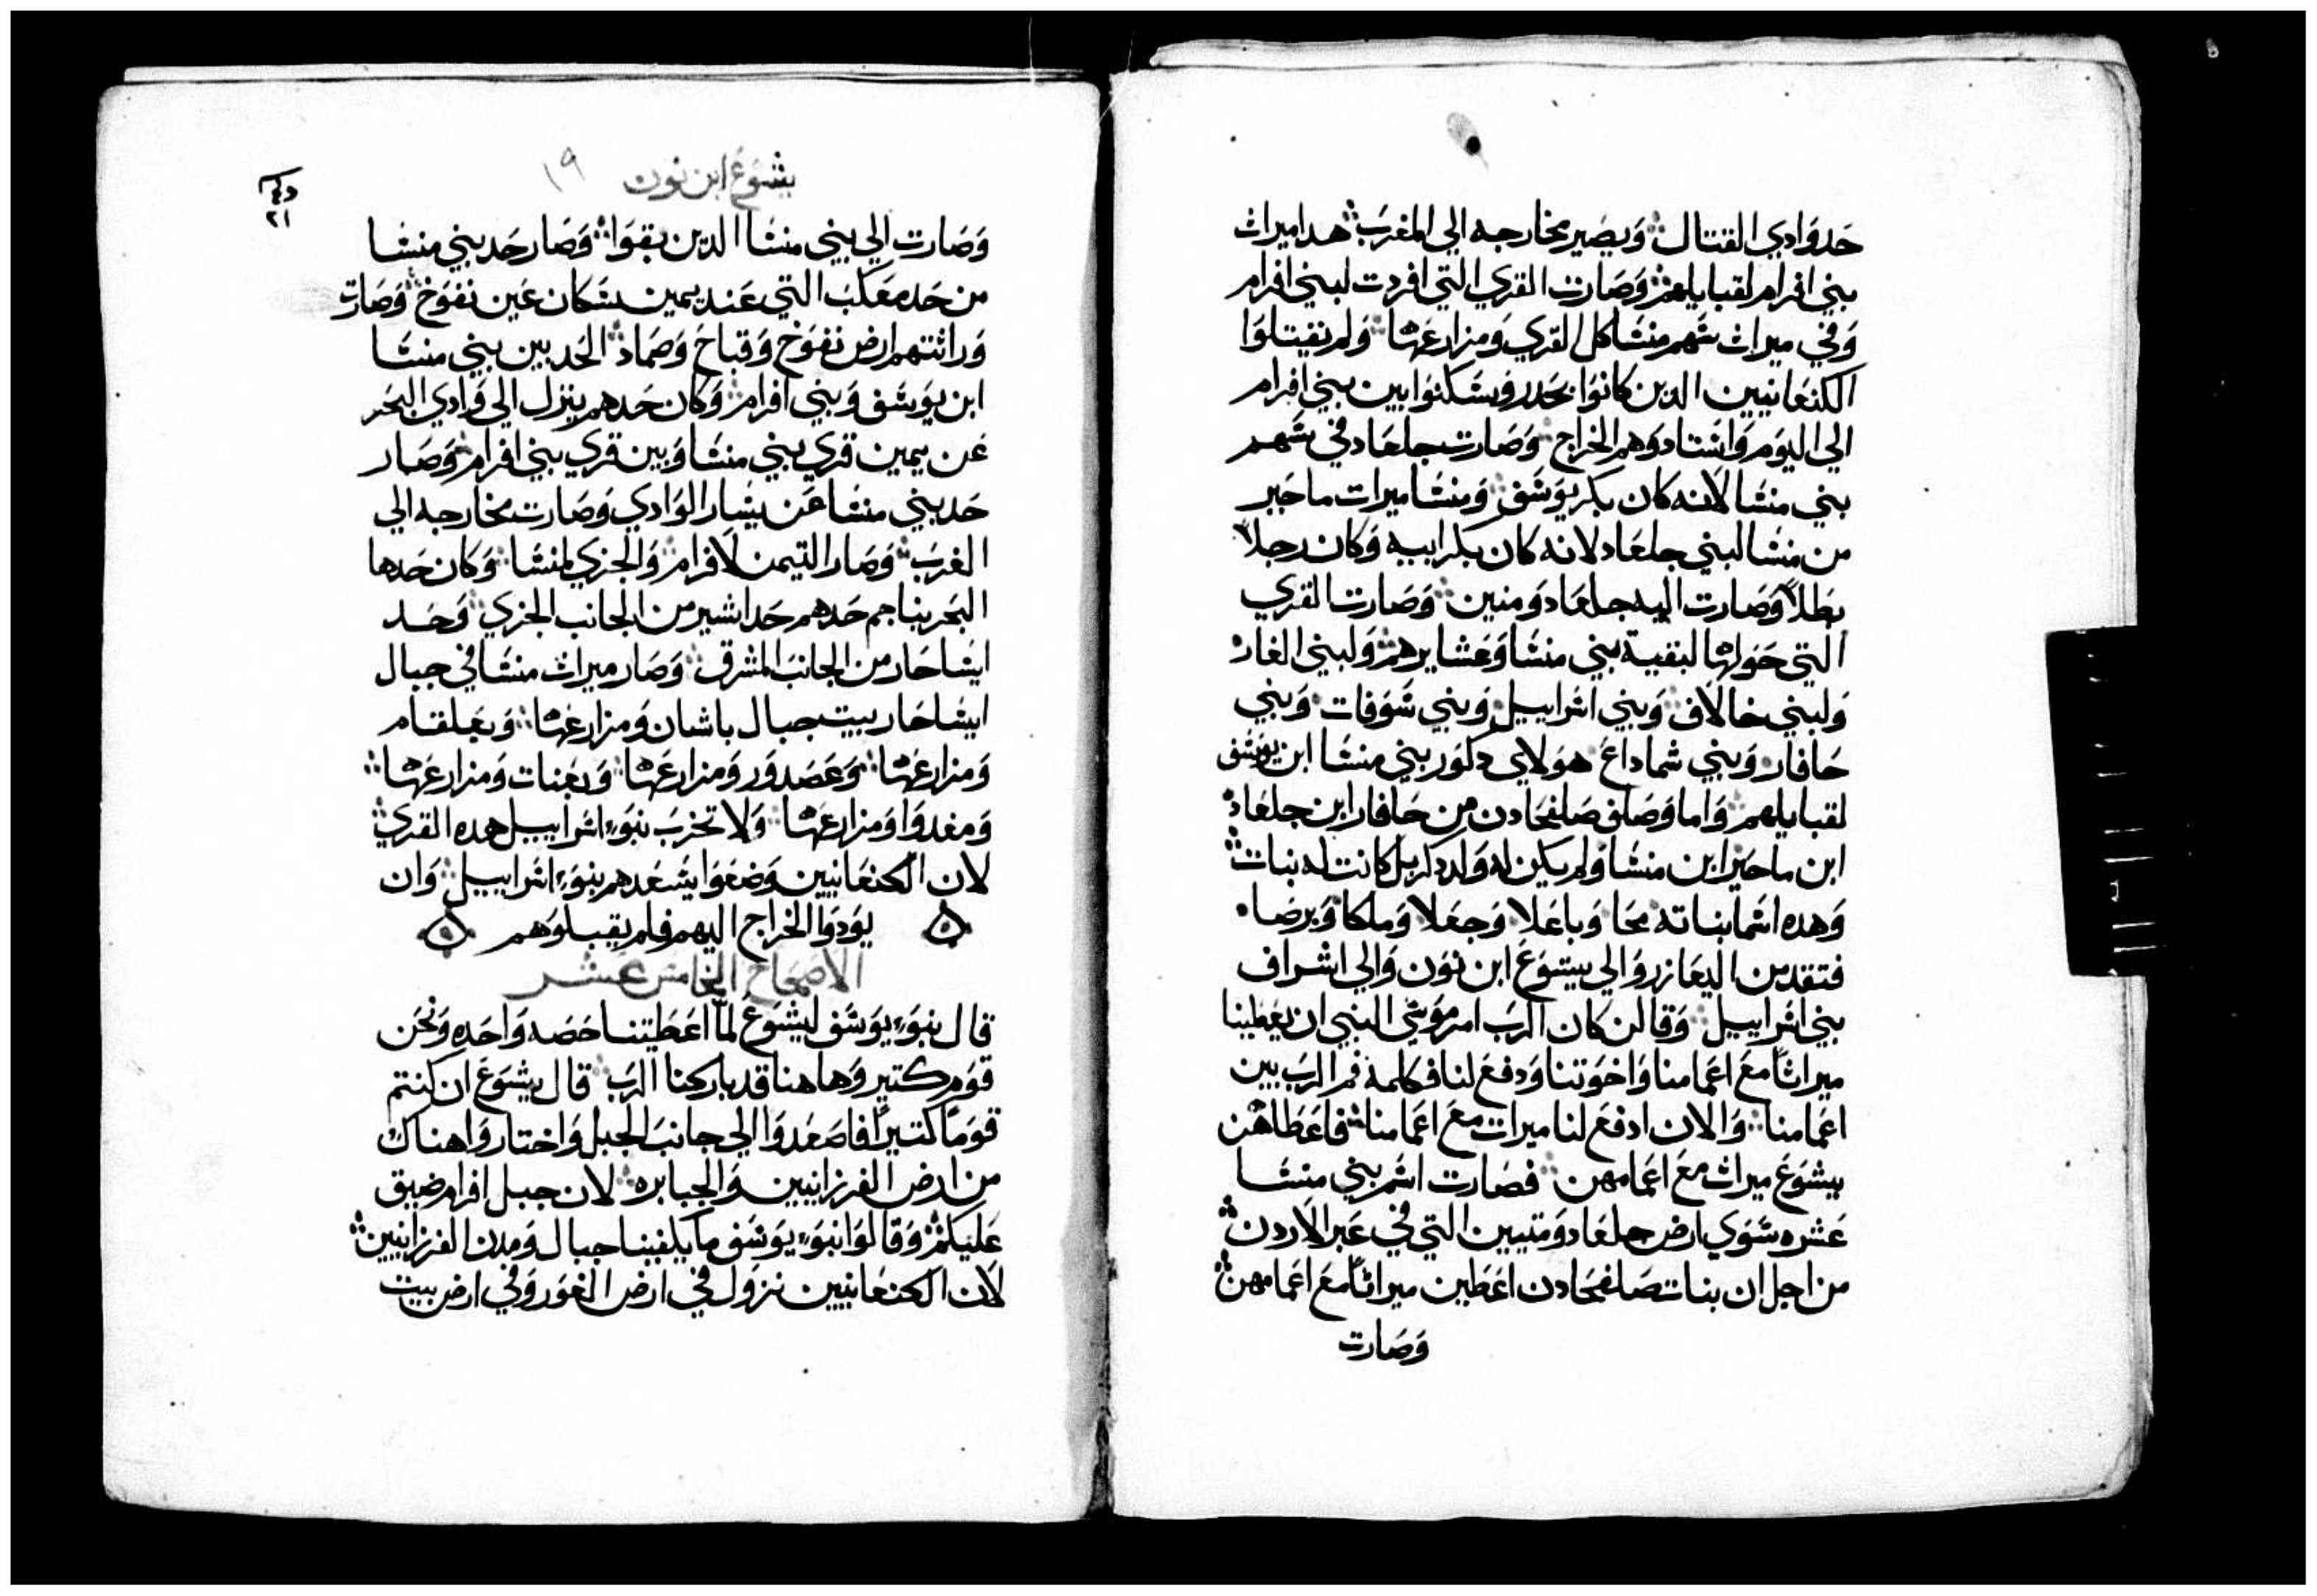 حد وادي القتال ويصير مخارجه الي المغرب هدا ميراث
بني افرام لقبايلهم وصارت القري التي افردت لبني افرام
وفي ميراث سهم منشا كل القري ومزارعها ولم نقيتلوا
الكنعانيين الدين كانوا بحدر وسكنوا بين بني افرام
الي اليوم واستادوهم الخراج وصارت جلعاد في سهم
بني منشا لانه كان بكر يوسف ومنشا ميرات ماحير
من منشا لبني جلعاد لانه كان بكر ابيه وكان رجلا
بطلا وصارت اليه جلعاد ومنين وصارت القري
التي حولها لبقية بني منشا وعشايرهم ولبني الغار
ولبني خالاف وبني اسراييل وبني شوفات وبني
حافار وبني شماداع هولاي دكور بني منشا ابن يوسف
لقبايلهم واما وصلف صلفحادن من حافار ابن جلعاد
ابن ماحير ابن منشا ولم يكن له ولد دكر بل كانت له بنات
وهده اسما بناته محا وباعلا وجعلا وملكا وبرصا
فتقدمن اليعازرو الي يشوع ابن نون والي اشراف
بني اسراييل وقالن كان الرب امر موسي النبي ان يعطينا
ميراثا مع اعمامنا واخوتنا ودفع لنا فكلمة فم الرب بين
اعمامنا والان ادفع لنا ميرات مع اعمامنا فاعطاهن
يشوع ميراث مع اعمامهن فصارت اسم بني منشا
عشره سوي ارض جلعاد ومتيين التي في عبر الاردن
من اجل ان بنات صلفحادن اعطين ميراثا مع اعمامهن
وصارت
يشوع ابن نون ١٩
٢١
وصارت الي بني منشا الدين بقوا وصار حد بني منشا
من حد معكب التي عند يمين سكان عين نفوخ وصارت
وراثتهم ارض نفوخ وقباح وصماد الحد بين بني منشا
ابن يوسف وبني افرام وكان حدهم ينزل الي وادي البحر
عن يمين قري بني منشا وبين قري بني افرام وصار
حد بني منشا عن يسار الوادي وصارت مخارجه الي
الغرب وصار التيمن لافرام والجزي لمنشا وكان حدها
البحر بناهم حدهم حد اشير من الجانب الجزي وحد
ايساحار من الجانب المشرق وصار ميراث منشا في جبال
ايساحار بيت جبال باشان ومزارعها وبعلقام
ومزارعها وعصدور ومزارعها وبعنات ومزارعها
ومغدوا ومزارعها ولا تخرب بنوا اسراييل هده القري
لان الكنعانيين وضعوا يسعدهم بنوا اسراييل وان
يودوا الخراج اليهم فلم يقبلوهم
الاصحاح الخامس عشر
قال بنوا يوسف ليشوع لما اعطيتنا حصه واحده ونحن
قوم كتير وهاهنا قد باركنا الرب قال يشوع ان كنتم
قوما كتيرا فاصعدوا الي جانب الجبل واختاروا هناك
من ارض الفرزانيين والجبابره لان جبل افرام ضيق
عليكم وقالوا بنوا يوسف ما يكفينا جبال ومدن الفرزانيين
لان الكنعانيين نزول في ارض الغور وفي ارض بيت